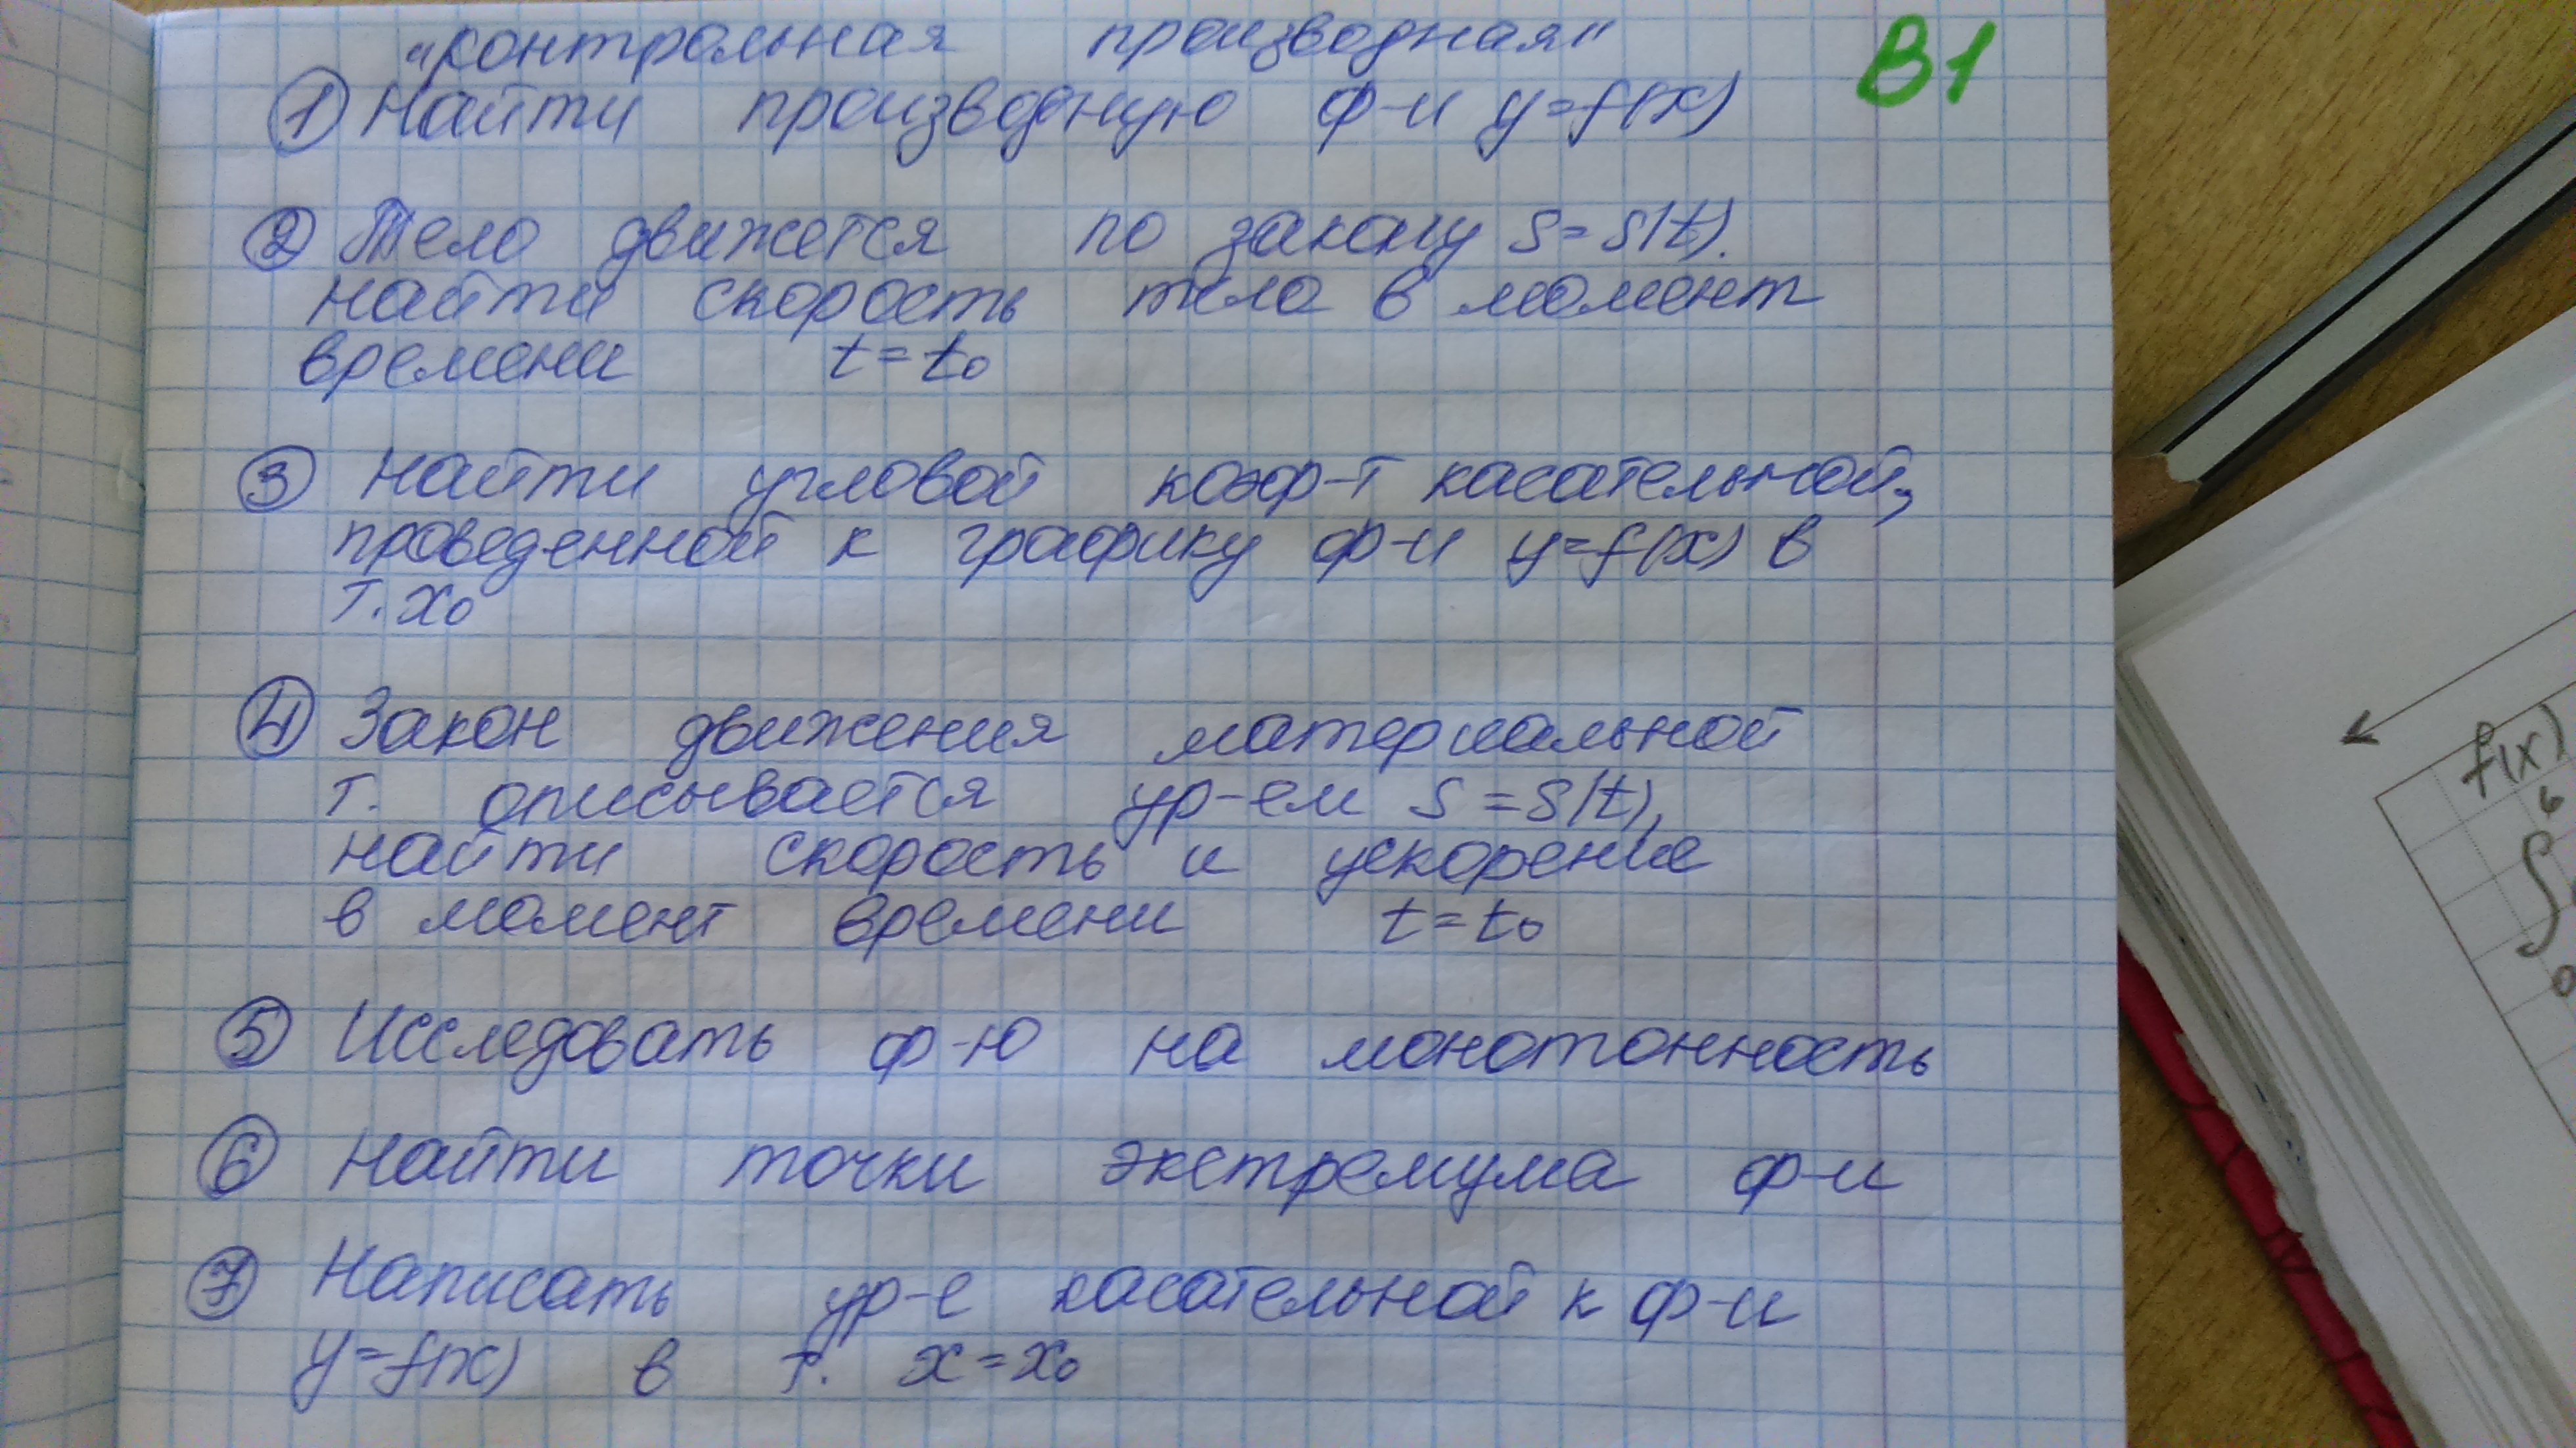 "контрольная производная"
В1
① Найти производную ф-и y=f(x)
② Тело движется по закону S=S(t).
найти скорость тела в момент
времени t=t₀
③ Найти угловой коэф-т касательной,
проведенной к графику ф-и y=f(x) в
т. x₀
④ Закон движения материальной
т. описывается ур-ем S=S(t),
найти скорость и ускорение
в момент времени t=t₀
⑤ Исследовать ф-ю на монотонность
⑥ Найти точки экстремума ф-и
⑦ Написать ур-е касательной к ф-и
y=f(x) в т. x=x₀
f(x)